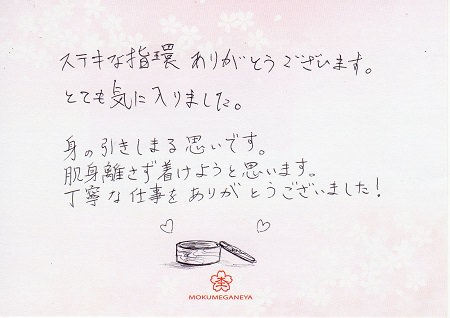 ステキな指環 ありがとうございます。
とても気に入りました。
身の引きしまる思いです。
肌身離さず着けようと思います。
丁寧な仕事をありがとうございました!
MOKUMEGANEYA